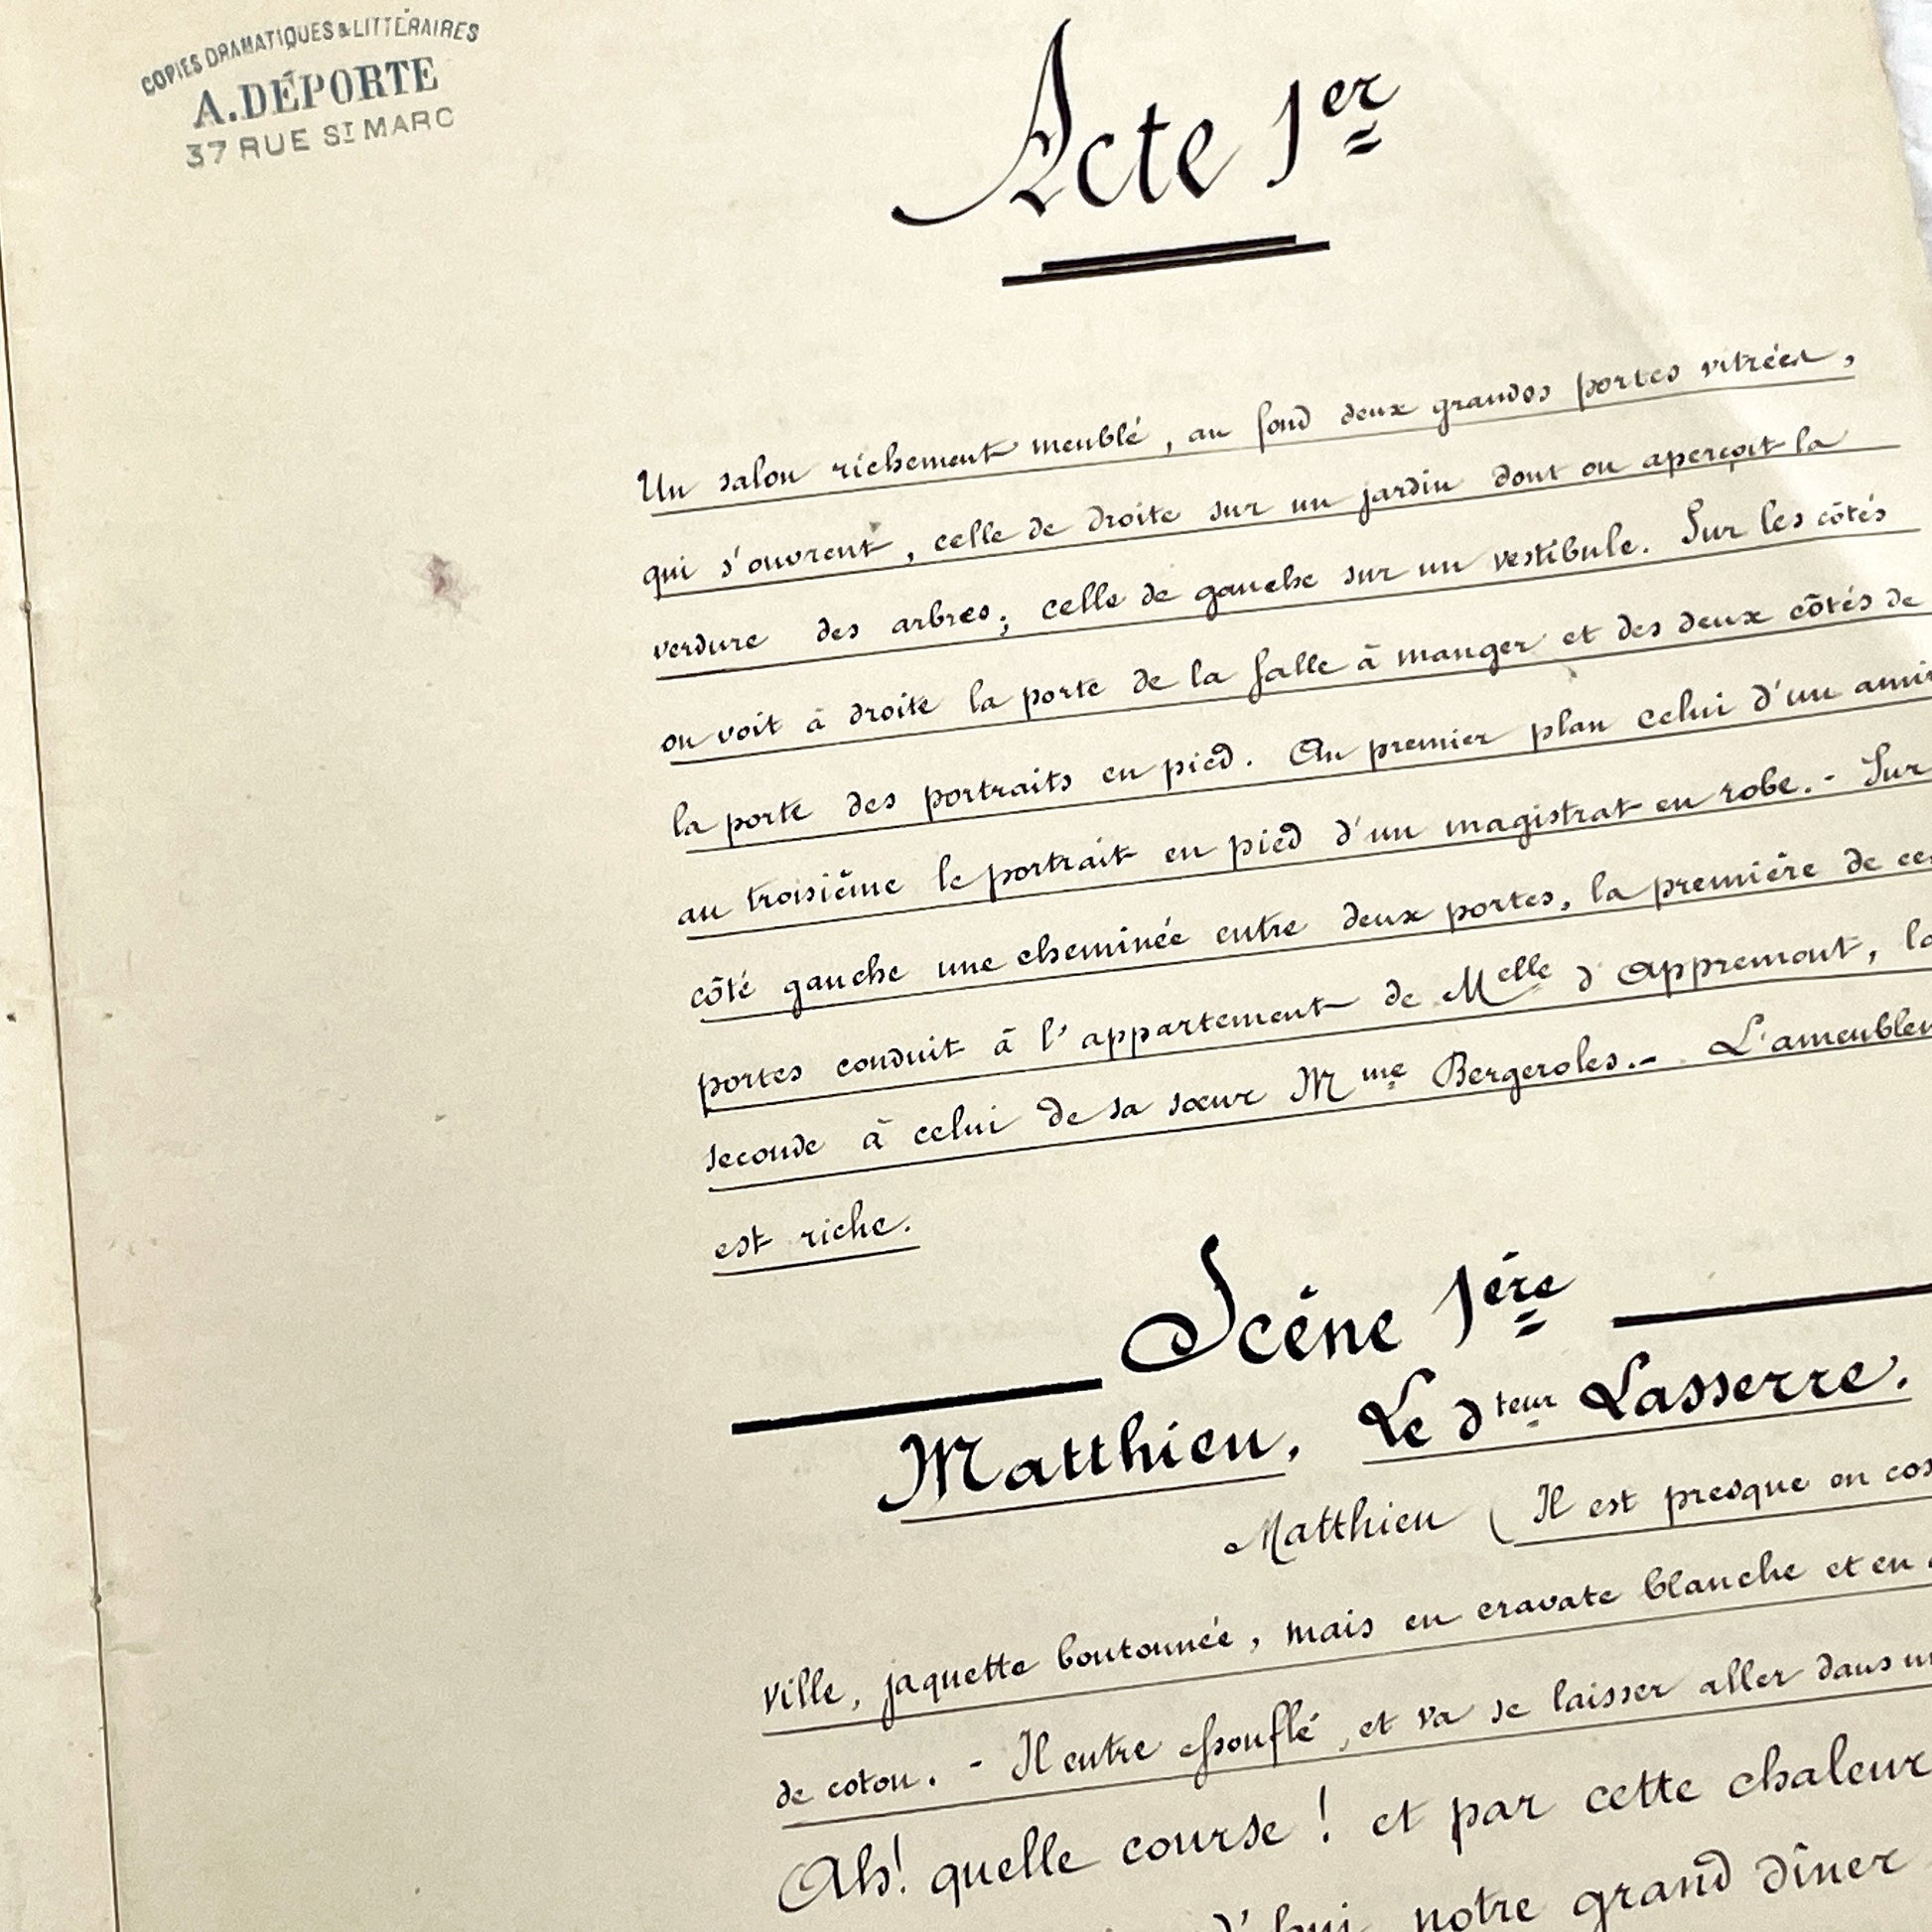 COPIES DRAMATIQUES & LITTÉRAIRES
A. DÉPORTE
37 RUE ST MARC
Acte 1er
Un salon richement meublé, au fond deux grandes portes vitrées,
qui s'ouvrent, celle de droite sur un jardin dont on aperçoit la
verdure des arbres; celle de gauche sur un vestibule. Sur les côtés
on voit à droite la porte de la salle à manger et des deux côtés de
la porte des portraits en pied. Au premier plan celui d'un
au troisième le portrait en pied d'un magistrat en robe. - Sur
côté gauche une cheminée entre deux portes, la première de
portes conduit à l'appartement de Melle d'Appremont,
seconde à celui de sa sœur Mme Bergeroles. -
est riche.
Scène 1ère
Matthieu, Le dteur Lasserre.
Matthieu (Il est presque en
ville, jaquette boutonnée, mais en cravate blanche et en
de coton. - Il entre essouflé, et va se laisser aller dans
Ah! quelle course! et par cette chaleur
notre grand dîner